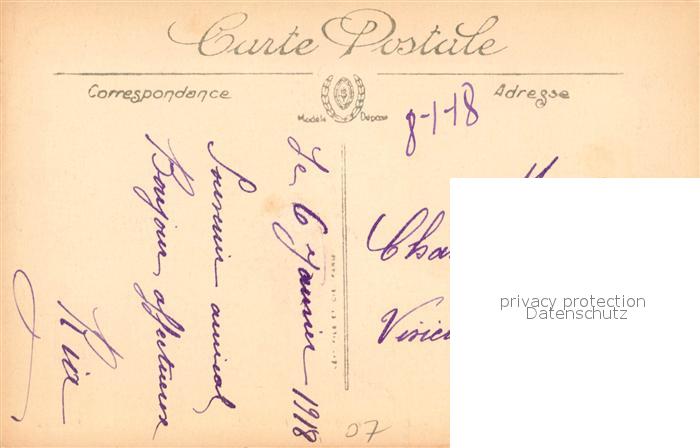 Carte Postale
Correspondance
Adresse
Modèle Déposé
8-1-18
Le 6 Janvier 1918
Souvenir amical
Bonjour affectueux
Ria
M
Cha
07
privacy protection
Datenschutz